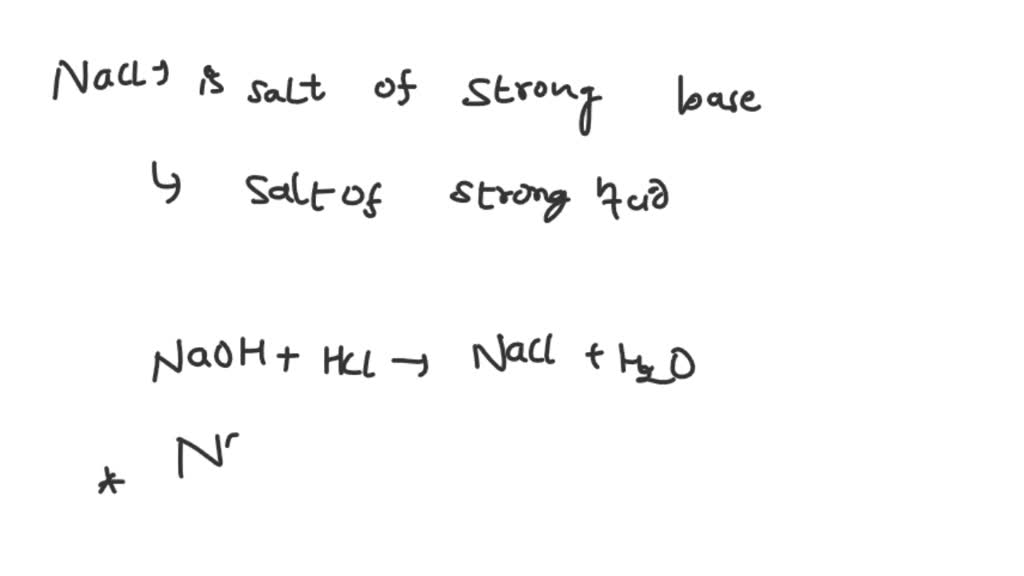 NaCl → is salt of strong base
↳ Salt of strong Acid
NaOH + HCl → NaCl + H₂O
* N